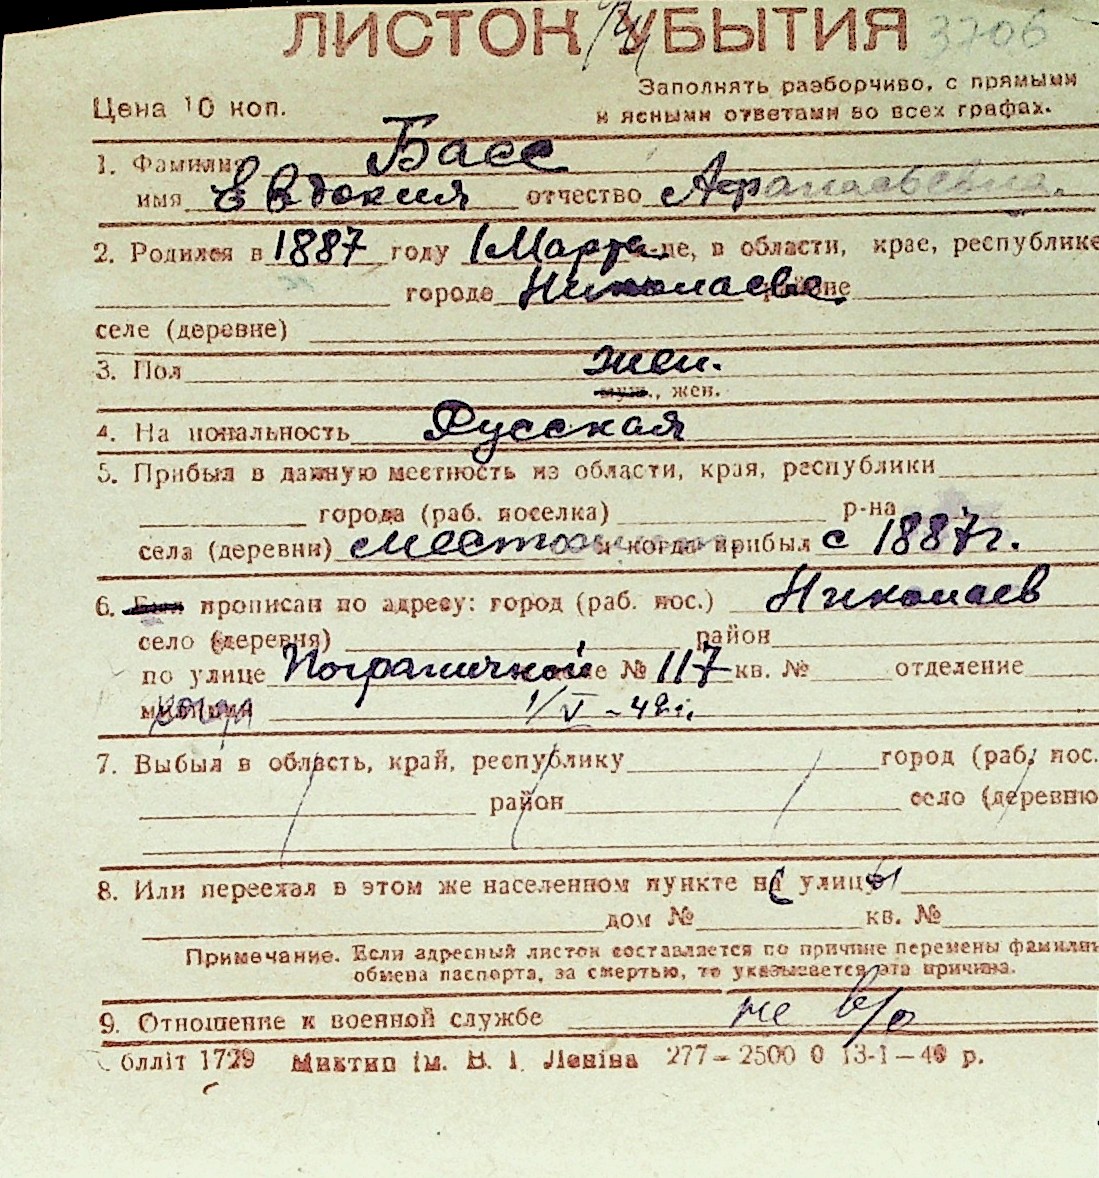 ЛИСТОК УБЫТИЯ 3706
Заполнять разборчиво, с прямыми
Цена 10 коп. и ясными ответами во всех графах.
1. Фамилия Басс
имя Евдокия отчество Афанасьевна.
2. Родился в 1887 году 1 Марта це, в области, крае, республике
городе Николаеве. районе
селе (деревне)
3. Пол жен.
муж., жен.
4. Национальность Русская
5. Прибыл в данную местность из области, края, республики
города (раб. поселка) р-на
села (деревни) и когда прибыл с 1887 г.
6. Был прописан по адресу: город (раб. пос.) Николаев
село (деревня) район
по улице Пограничной № 117 кв. № отделение
милиции 1/V - 42 г.
7. Выбыл в область, край, республику город (раб. пос.
район село (деревню
8. Или переехал в этом же населенном пункте на улицу
дом № кв. №
Примечание. Если адресный листок составляется по причине перемены фамилии
обмена паспорта, за смертью, то указывается эта причина.
9. Отношение к военной службе не в/о
блліт 1729 Миктип ім. В. І. Леніна 277-2500 0 13-1-40 р.